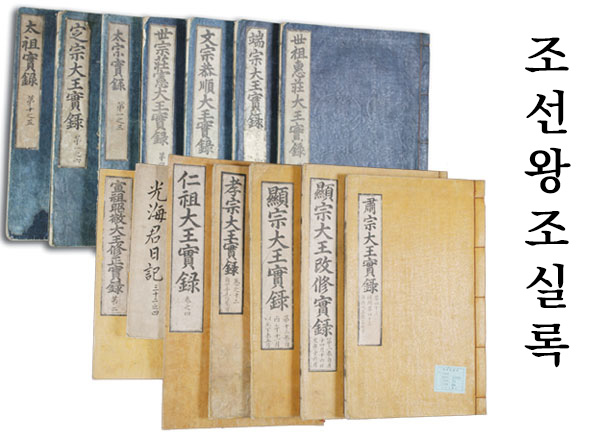 太祖實錄
第十之五
定宗大王實錄
太宗實錄
世宗莊憲大王實錄
文宗恭順大王實錄
端宗大王實錄
世祖惠莊大王實錄
宣祖昭敬大王修正實錄
光海君日記
三十三之四
仁祖大王實錄
卷之四
孝宗大王實錄
顯宗大王實錄
顯宗大王改修實錄
肅宗大王實錄
조선왕조실록